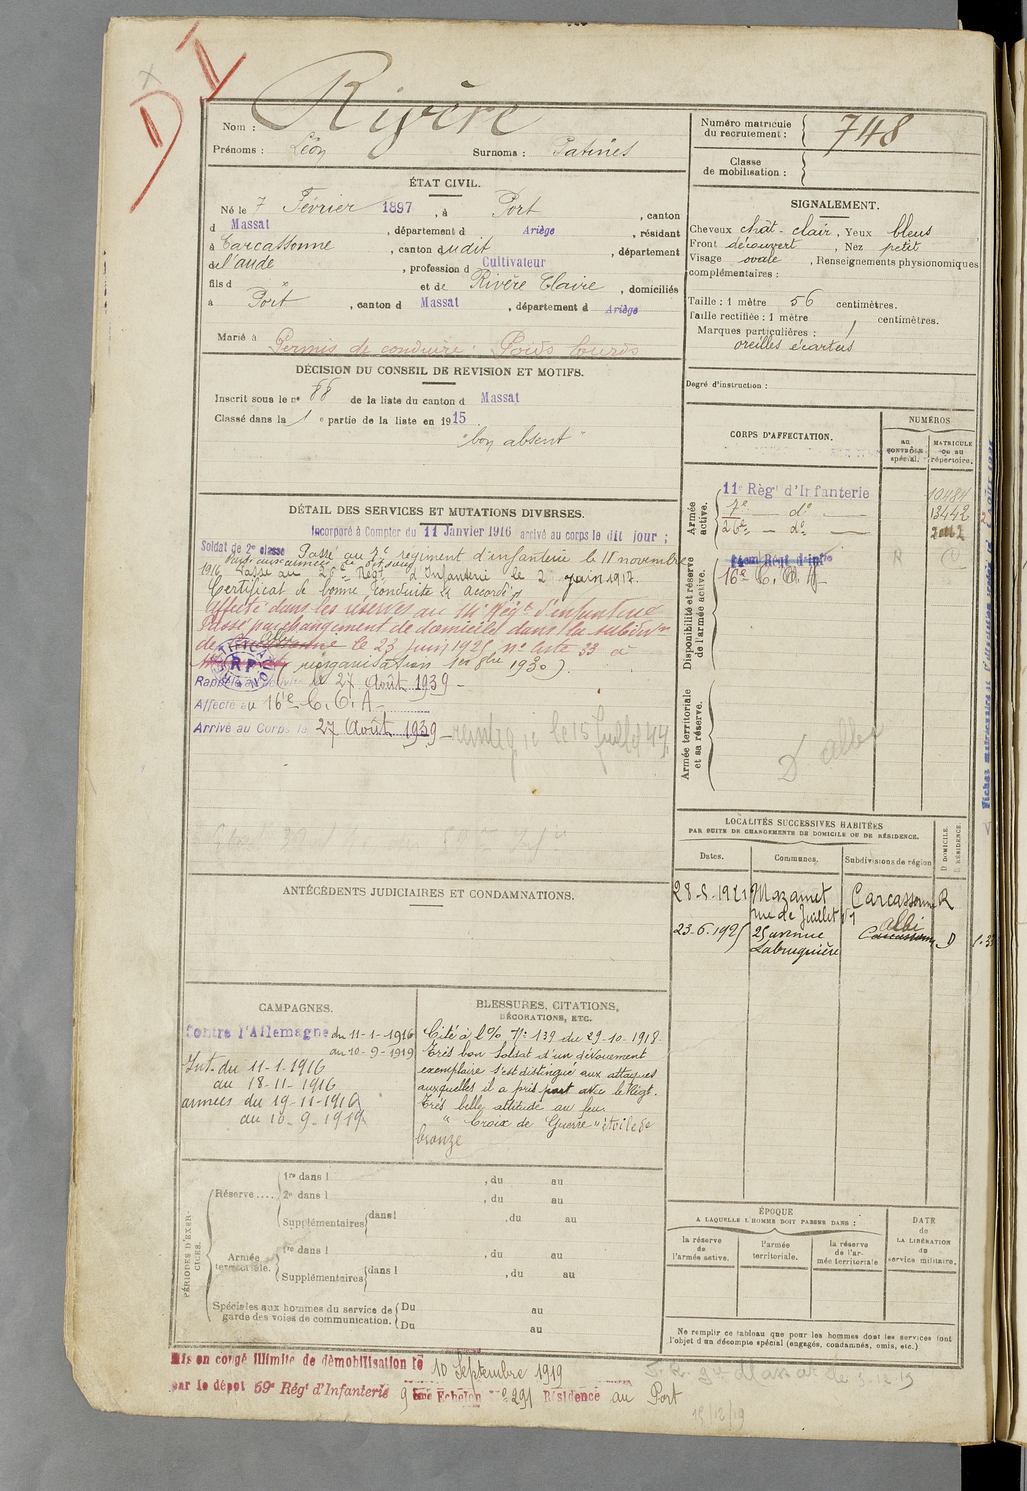 Rivère
Nom :
Prénoms : Léon Surnoms : Patines
Numéro matricule du recrutement : 748
Classe de mobilisation :
ÉTAT CIVIL.
Né le 7 Février 1897, à Port, canton
d Massat, département d Ariège, résidant
à Carcassonne, canton dudit, département
de l'aude, profession d Cultivateur
fils d x et de Rivère Claire, domiciliés
à Port, canton d Massat, département d Ariège
Marié à
Permis de conduire : Poids lourds
SIGNALEMENT.
Cheveux chât-clair, Yeux bleus
Front découvert, Nez petit
Visage ovale, Renseignements physionomiques
complémentaires :
Taille : 1 mètre 56 centimètres.
Taille rectifiée : 1 mètre centimètres.
Marques particulières : /
oreilles écartées
Degré d'instruction :
DÉCISION DU CONSEIL DE REVISION ET MOTIFS.
Inscrit sous le n° 88 de la liste du canton d Massat
Classé dans la 1 e partie de la liste en 1915
"bon absent"
CORPS D'AFFECTATION.
NUMÉROS
au CONTRÔLE spécial.
MATRICULE ou au répertoire.
Armée active.
11e Régt d'Infanterie 10484
7e — do — 13442
26e — do —
Disponibilité et réserve de l'armée active.
16e C. O. A
R
Armée territoriale et sa réserve.
D albi
DÉTAIL DES SERVICES ET MUTATIONS DIVERSES.
Incorporé à Compter du 11 Janvier 1916 arrivé au corps le dit jour ;
Soldat de 2e classe Passé au 7e régiment d'infanterie le 18 novembre
1916 Passé au 26e Régt d'Infanterie le 2 juin 1917.
Certificat de bonne Conduite "Accordé"
Affecté dans les réserves au 14e Régt d'infanterie
Passé par changement de domicile dans la subdivon
de albi le 23 juin 1925 no liste 33 a
(réorganisation 1er 8bre 1930).
RP
Rappelé à l'activité le 27 Août 1939 -
Affecté au 16e C. O. A -
Arrivé au Corps le 27 Août 1939 -
ANTÉCÉDENTS JUDICIAIRES ET CONDAMNATIONS.
LOCALITÉS SUCCESSIVES HABITÉES
PAR SUITE DE CHANGEMENTS DE DOMICILE OU DE RÉSIDENCE.
Dates. Communes. Subdivisions de région D. DOMICILE. R. RÉSIDENCE.
28-5-1921 Mazamet Carcassonne R
rue de Juillet 51
23-6-1925 25 avenue albi D
Labruguière Carcassonne
CAMPAGNES.
Contre l'Allemagne du 11-1-1916
au 10-9-1919
Int. du 11-1-1916
au 18-11-1916
armées du 19-11-1916
au 10-9-1919
BLESSURES, CITATIONS,
DÉCORATIONS, ETC.
Cité à l'O/o No 139 du 29-10-1918
Très bon Soldat d'un dévouement
exemplaire s'est distingué aux attaques
auxquelles il a pris part avec le Régt.
Très belle attitude au feu.
" Croix de Guerre " étoile de
bronze
PÉRIODES D'EXERCICES.
Réserve ....
1re dans l , du au
2e dans l , du au
Supplémentaires dans l , du au
Armée territoriale.
1re dans l , du au
Supplémentaires dans l , du au
Spéciales aux hommes du service de garde des voies de communication.
Du au
Du au
ÉPOQUE
A LAQUELLE L'HOMME DOIT PASSER DANS :
la réserve de l'armée active.
l'armée territoriale.
la réserve de l'armée territoriale
DATE de LA LIBÉRATION du service militaire.
Ne remplir ce tableau que pour les hommes dont les services font
l'objet d'un décompte spécial (engagés, condamnés, omis, etc.)
Mis en congé illimité de démobilisation le 10 Septembre 1919
par le dépôt 59e Régt d'Infanterie 9 ème Echelon No 291 Résidence au Port
15/12/19